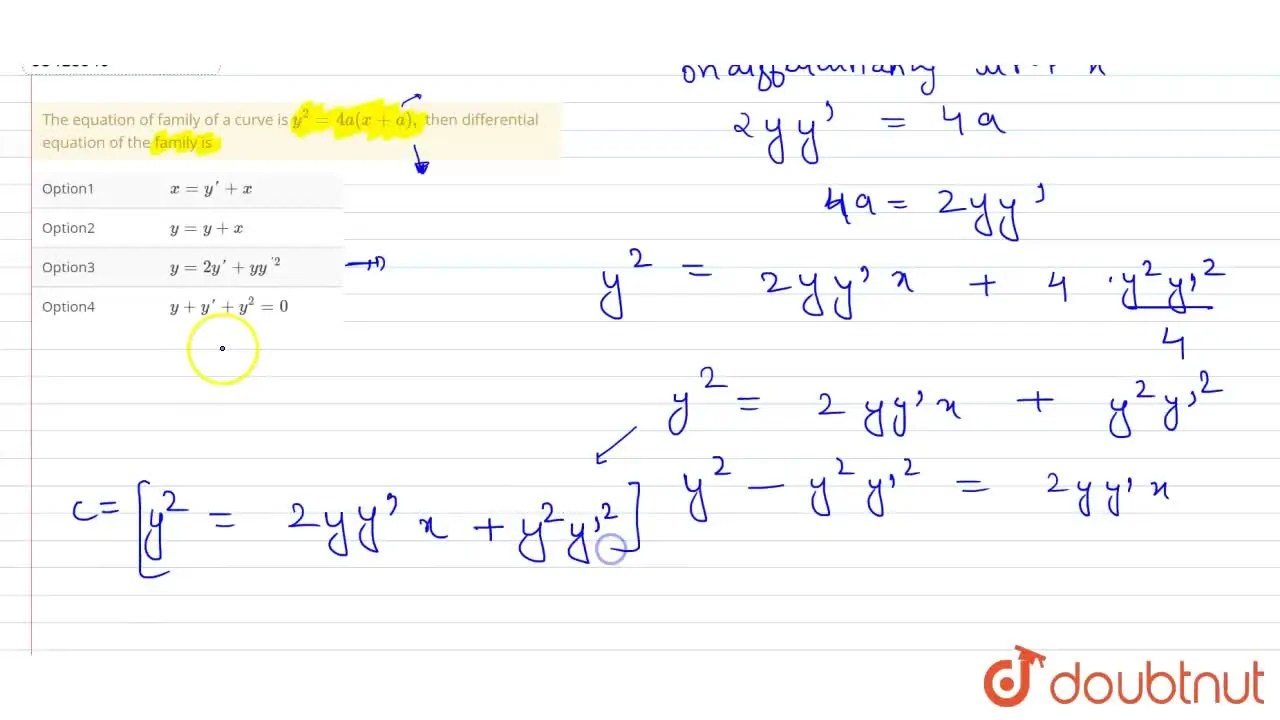 The equation of family of a curve is y² = 4a(x + a), then differential
equation of the family is
Option1 x = y′ + x
Option2 y = y + x
Option3 y = 2y′ + yy′²
Option4 y + y′ + y² = 0
on differentiating w.r.t x
2yy' = 4a
4a = 2yy'
y² = 2yy'x + 4 · y²y'²/4
y² = 2yy'x + y²y'²
y² − y²y'² = 2yy'x
C = [y² = 2yy'x + y²y'²]
doubtnut